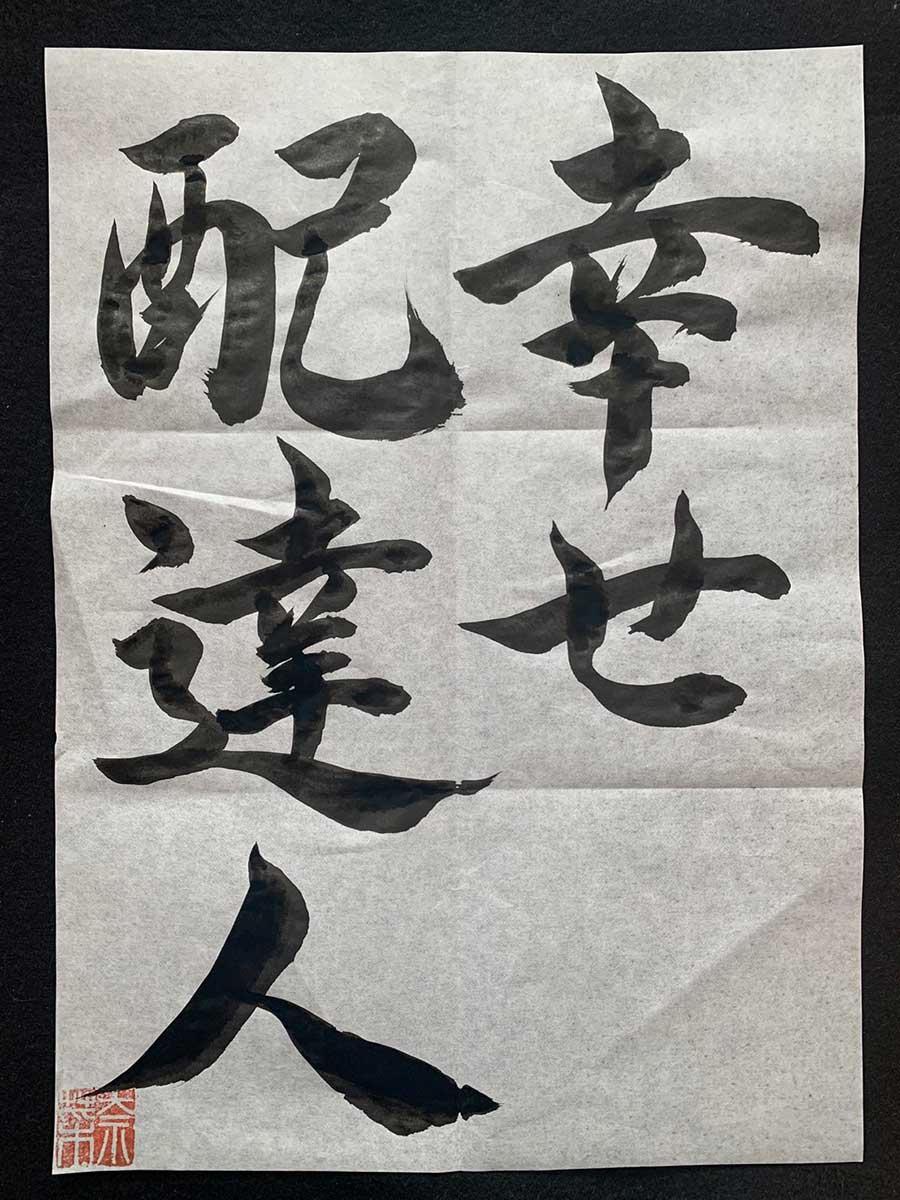 幸せ
配達人